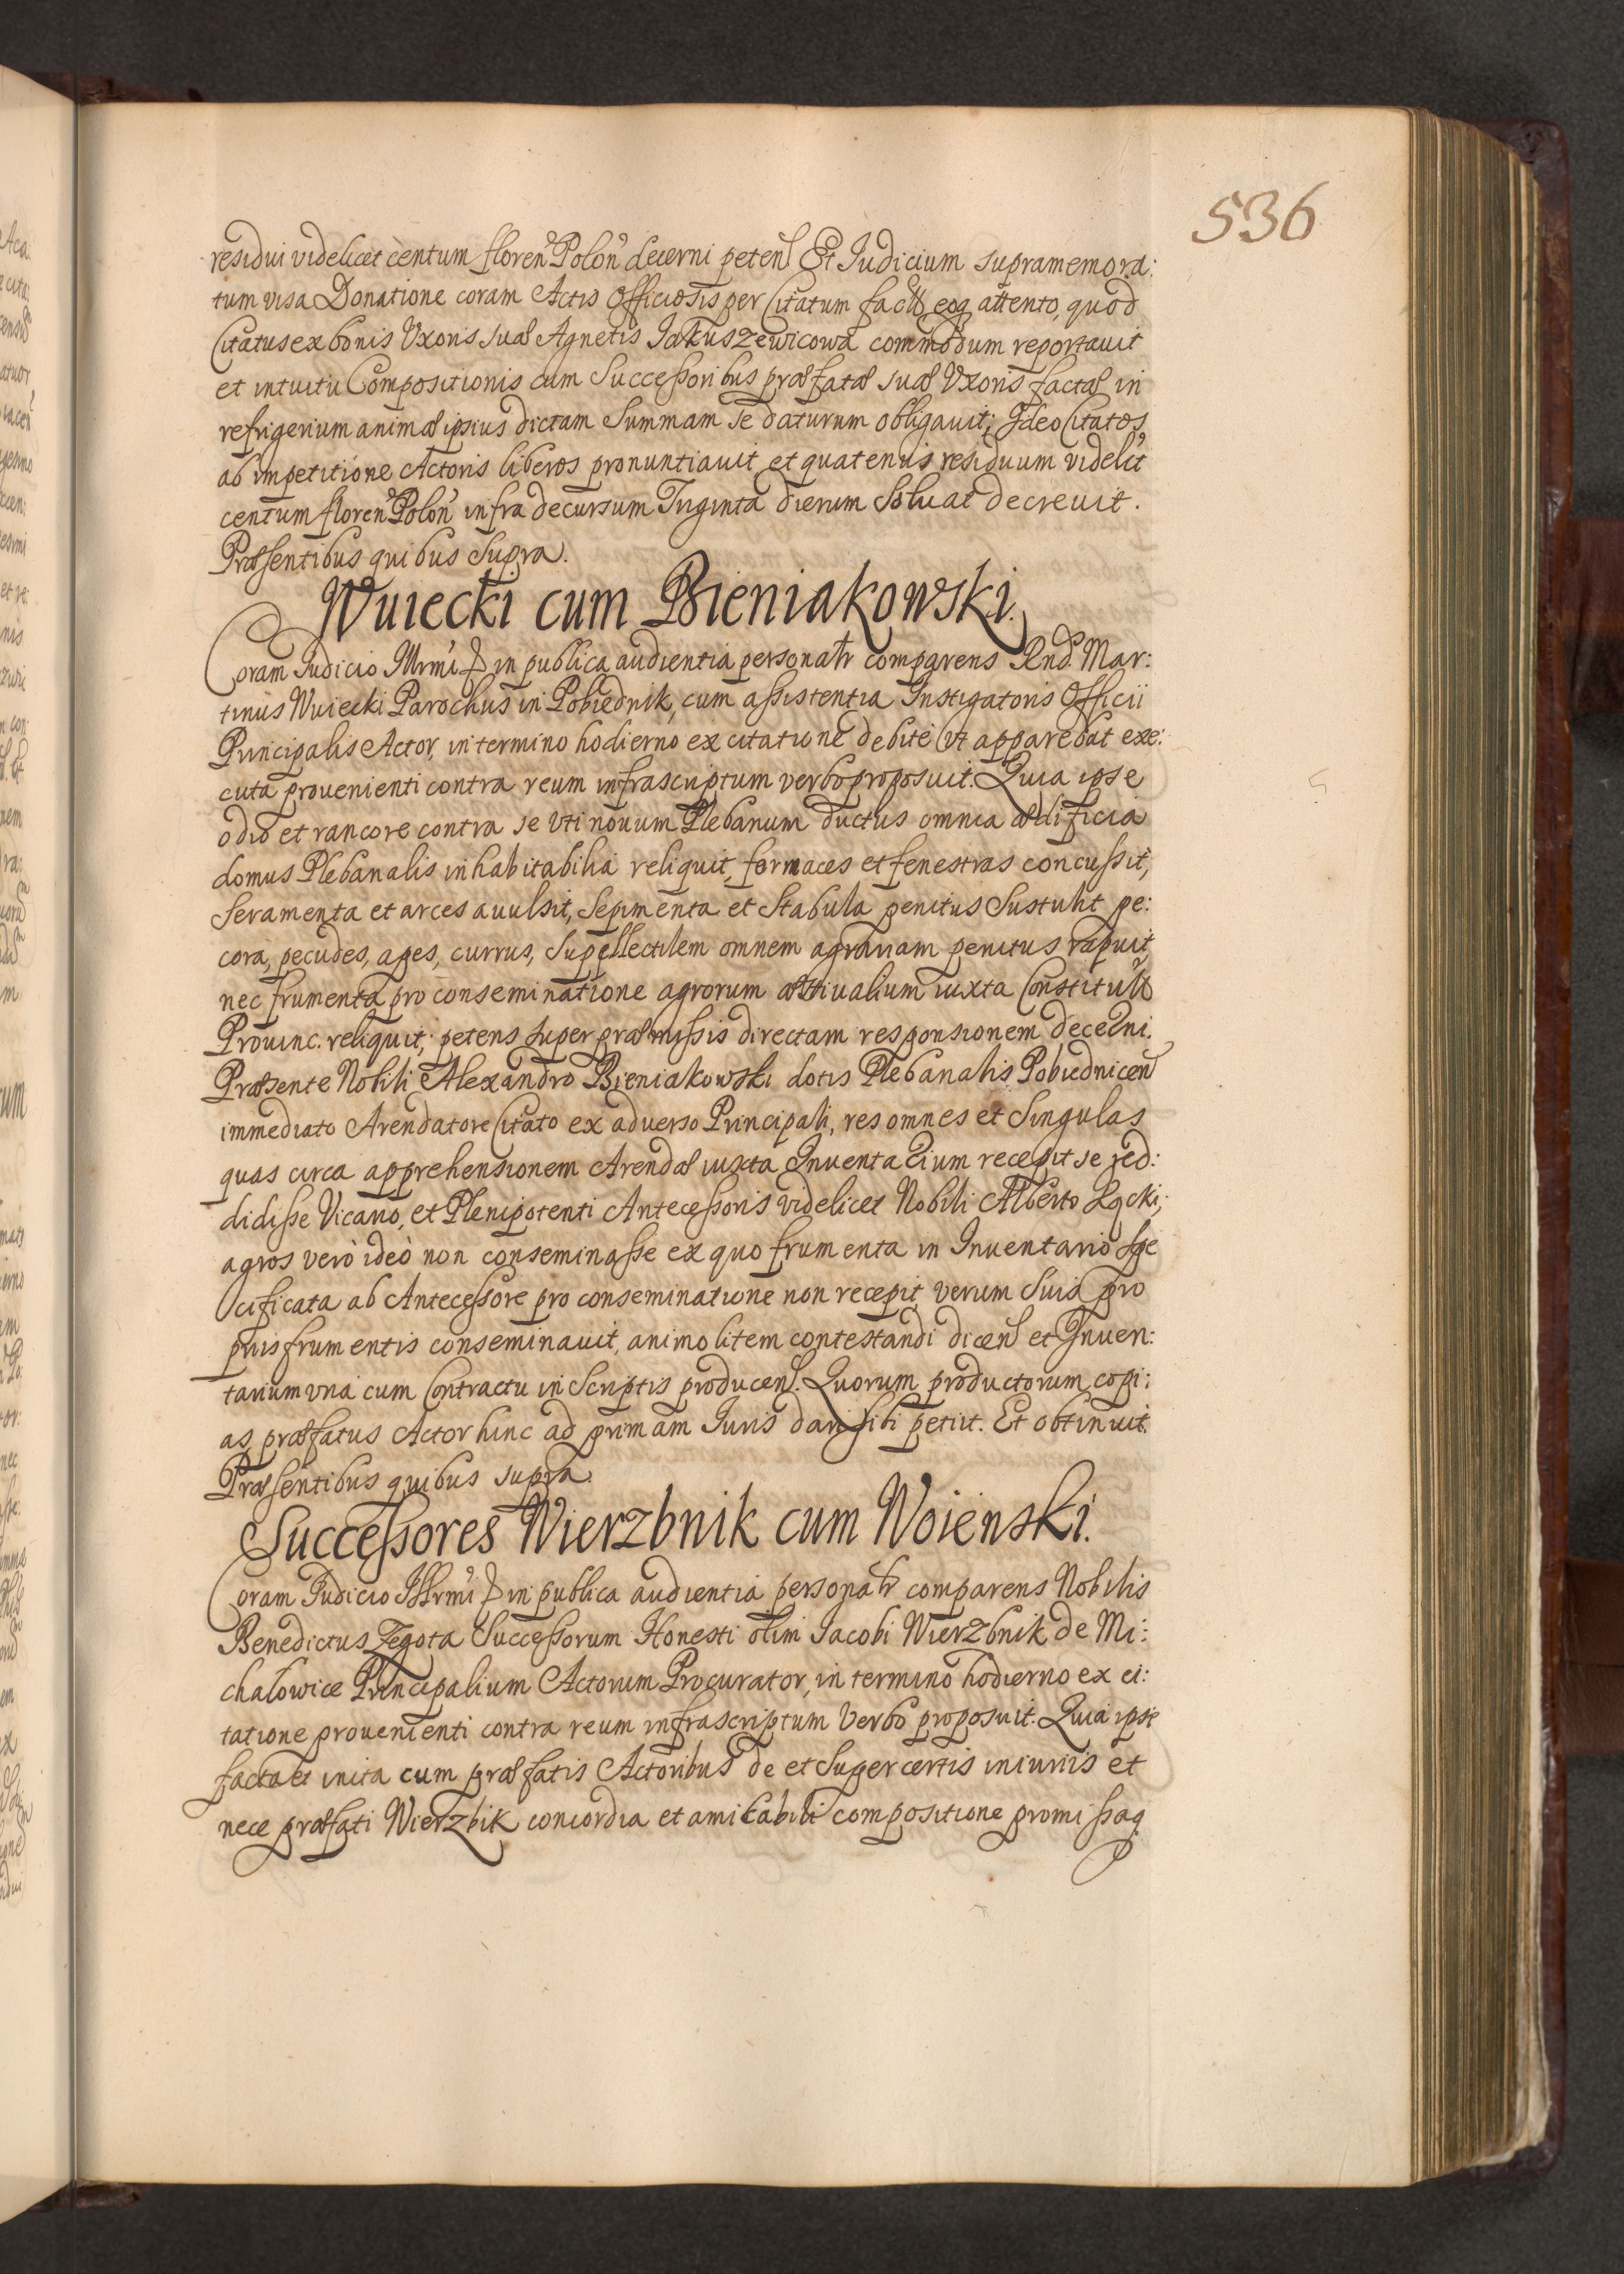 536
residui videlicet centum floren Polon decerni petens Et Iudicium supramemora:
tum visa Donatione coram Actis Officiosis per Citatum facta eoq attento, quod
Citatus ex bonis Uxoris suæ Agnetis Jakuszewicowa commodum reportauit
et intuitu Compositionis cum Successoribus præfatæ suæ Uxoris factæ in
refrigerium animæ ipsius dictam summam se daturum obligauit; Ideo Citatos
ab impetitione Actoris liberos pronuntiauit et quatenus residuum videlit
centum floren Polon infra decursum Triginta dierum Soluat decreuit.
Præsentibus quibus supra.
Wuiecki cum Bieniakowski.
Coram Iudicio Illrmi D in publica audientia personalr comparens Rnd. Mar:
tinus Wuiecki Parochus in Pobiednik, cum assistentia Instigatoris Officii
Principalis Actor, in termino hodierno ex citatione debite vt apparebat exe:
cuta prouenienti contra reum infrascriptum verbo proposuit. Quia ipse
odio et rancore contra se vti nouum Plebanum ductus omnia ædificia
domus Plebanalis inhabitabilia reliquit, fornaces et fenestras concussit,
seramenta et arces auulsit, Sepimenta et Stabula penitus Sustulit pe:
cora, pecudes, apes, currus, Supellectilem omnem agrariam penitus rapuit,
nec frumenta pro conseminatione agrorum æstiualium iuxta Constitut
Prouinc. reliquit; petens super præmissis directam responsionem decerni.
Præsente Nobili Alexandro Bieniakowski dotis Plebanalis Pobiednicen
immediato Arendatore Citato ex aduerso Principali, res omnes et Singulas
quas circa apprehensionem Arendæ iuxta Inuentarium recepit se red:
didisse Vicario, et Plenipotenti Antecessoris videlicet Nobili Alberto Łącki;
agros verò ideò non conseminasse ex quo frumenta in Inuentario spe
cificata ab Antecessore pro conseminatione non recepit, verum Suis pro
priis frumentis conseminauit, animo litem contestandi dicens et Inuen:
tarium vna cum Contractu in Scriptis producens. Quorum productorum copi:
as præfatus Actor hinc ad primam Iuris dari sibi petiit. Et obtinuit.
Præsentibus quibus supra.
Successores Wierzbnik cum Woienski.
Coram Iudicio Illrmi D in publica audientia personalr comparens Nobilis
Benedictus Zegota Successorum Honesti olim Jacobi Wierzbnik de Mi:
chałowice Principalium Actorum Procurator, in termino hodierno ex ci:
tatione prouenienti contra reum infrascriptum verbo proposuit. Quia ipse
facta et inita cum præfatis Actoribus de et super certis iniuriis et
nece præfati Wierzbik concordia et amicabili compositione promissaq